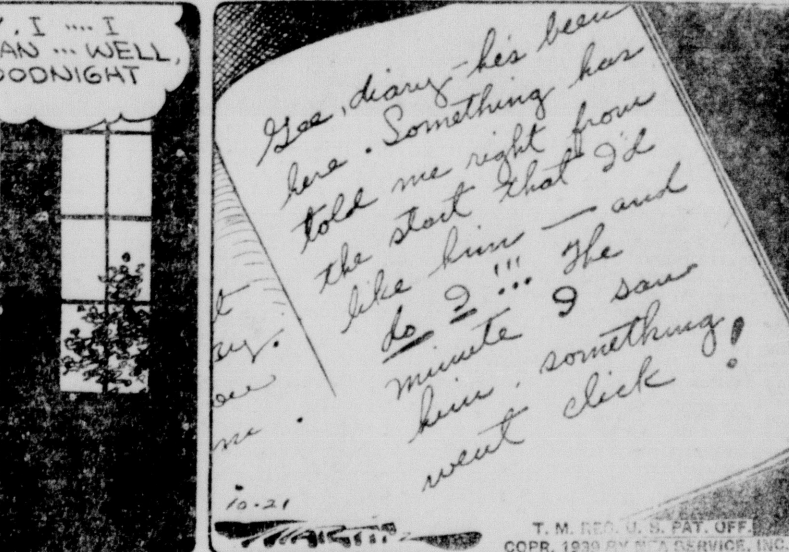 Y, I .... I
AN ... WELL,
OODNIGHT
Gee, diary - he's been
here. Something has
told me right from
the start that I'd
like him — and
do I !!! The
minute I saw
him, something
went click!
10-21
MARTIN
T. M. REG. U. S. PAT. OFF.
COPR. 1939 BY NEA SERVICE, INC.